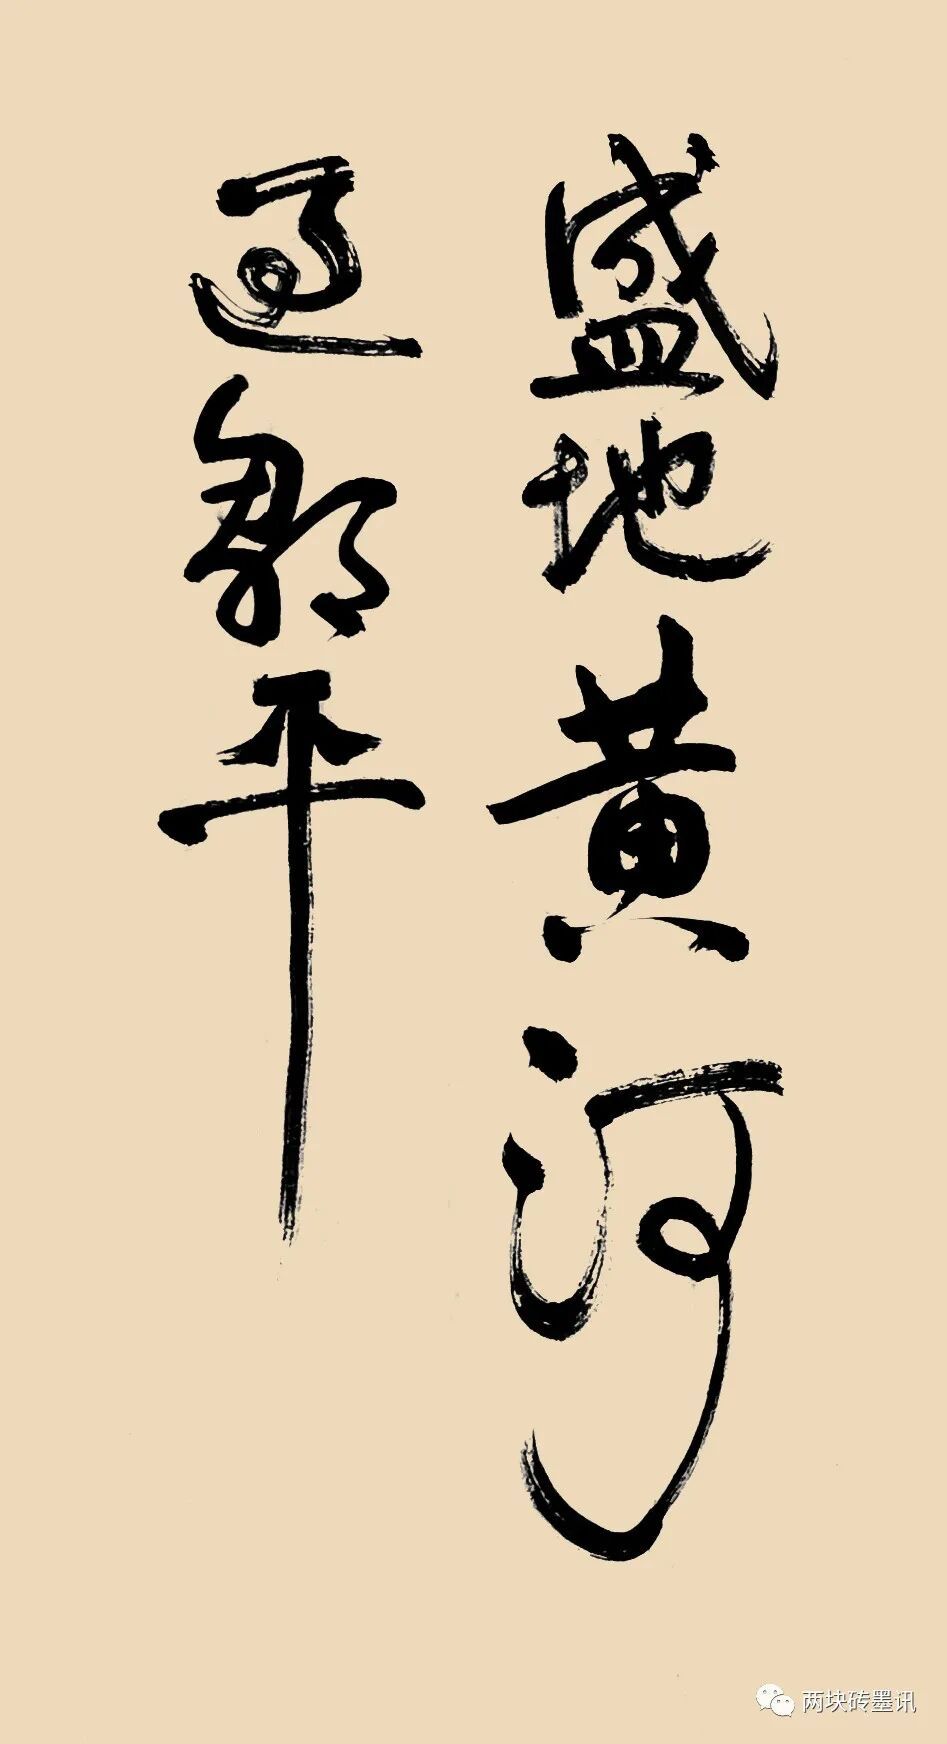 盛地黄河
過鄒平
两块砖墨讯